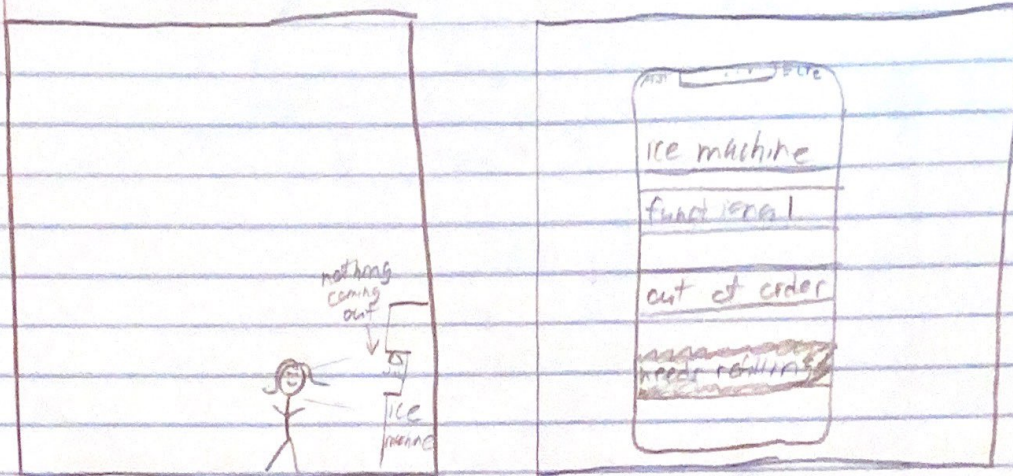 nothing
coming
out
ice
machine
LTE
ice machine
functional
out of order
needs refilling